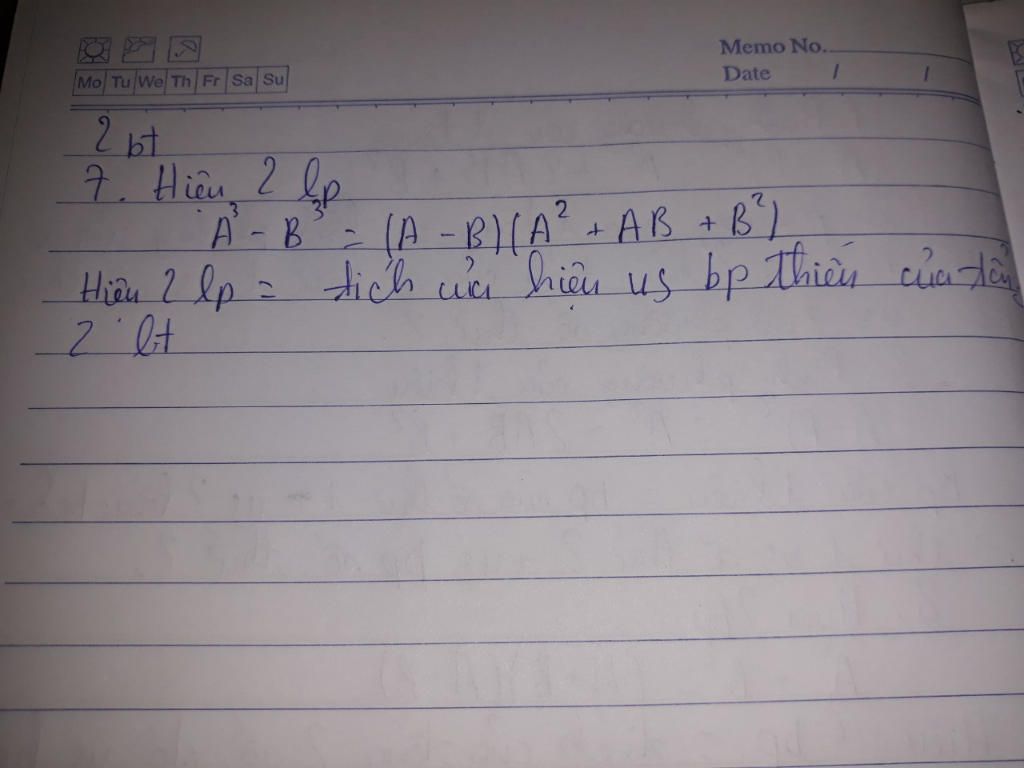 Memo No.
Mo Tu We Th Fr Sa Su
Date / /
2 bt
7. Hiệu 2 lp
A³ - B³ = (A - B)(A² + AB + B²)
Hiệu 2 lp = tích của hiệu vs bp thiếu của tổng
2 bt